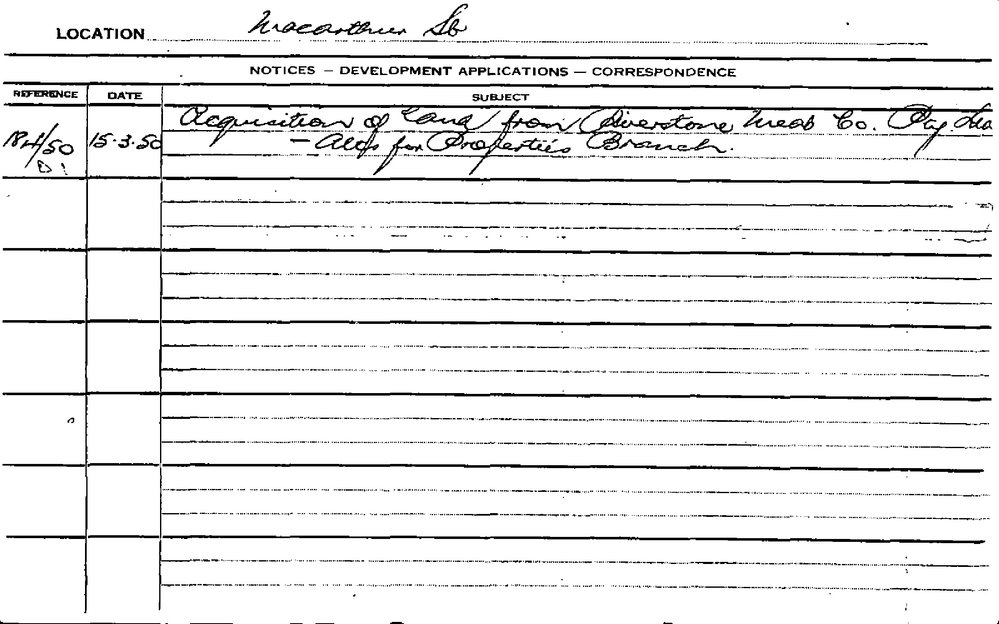 LOCATION Macarthur St
NOTICES – DEVELOPMENT APPLICATIONS – CORRESPONDENCE
REFERENCE DATE SUBJECT
Acquisition of land from Riverstone Meat Co. Pty
15.3.50 for Properties Branch.